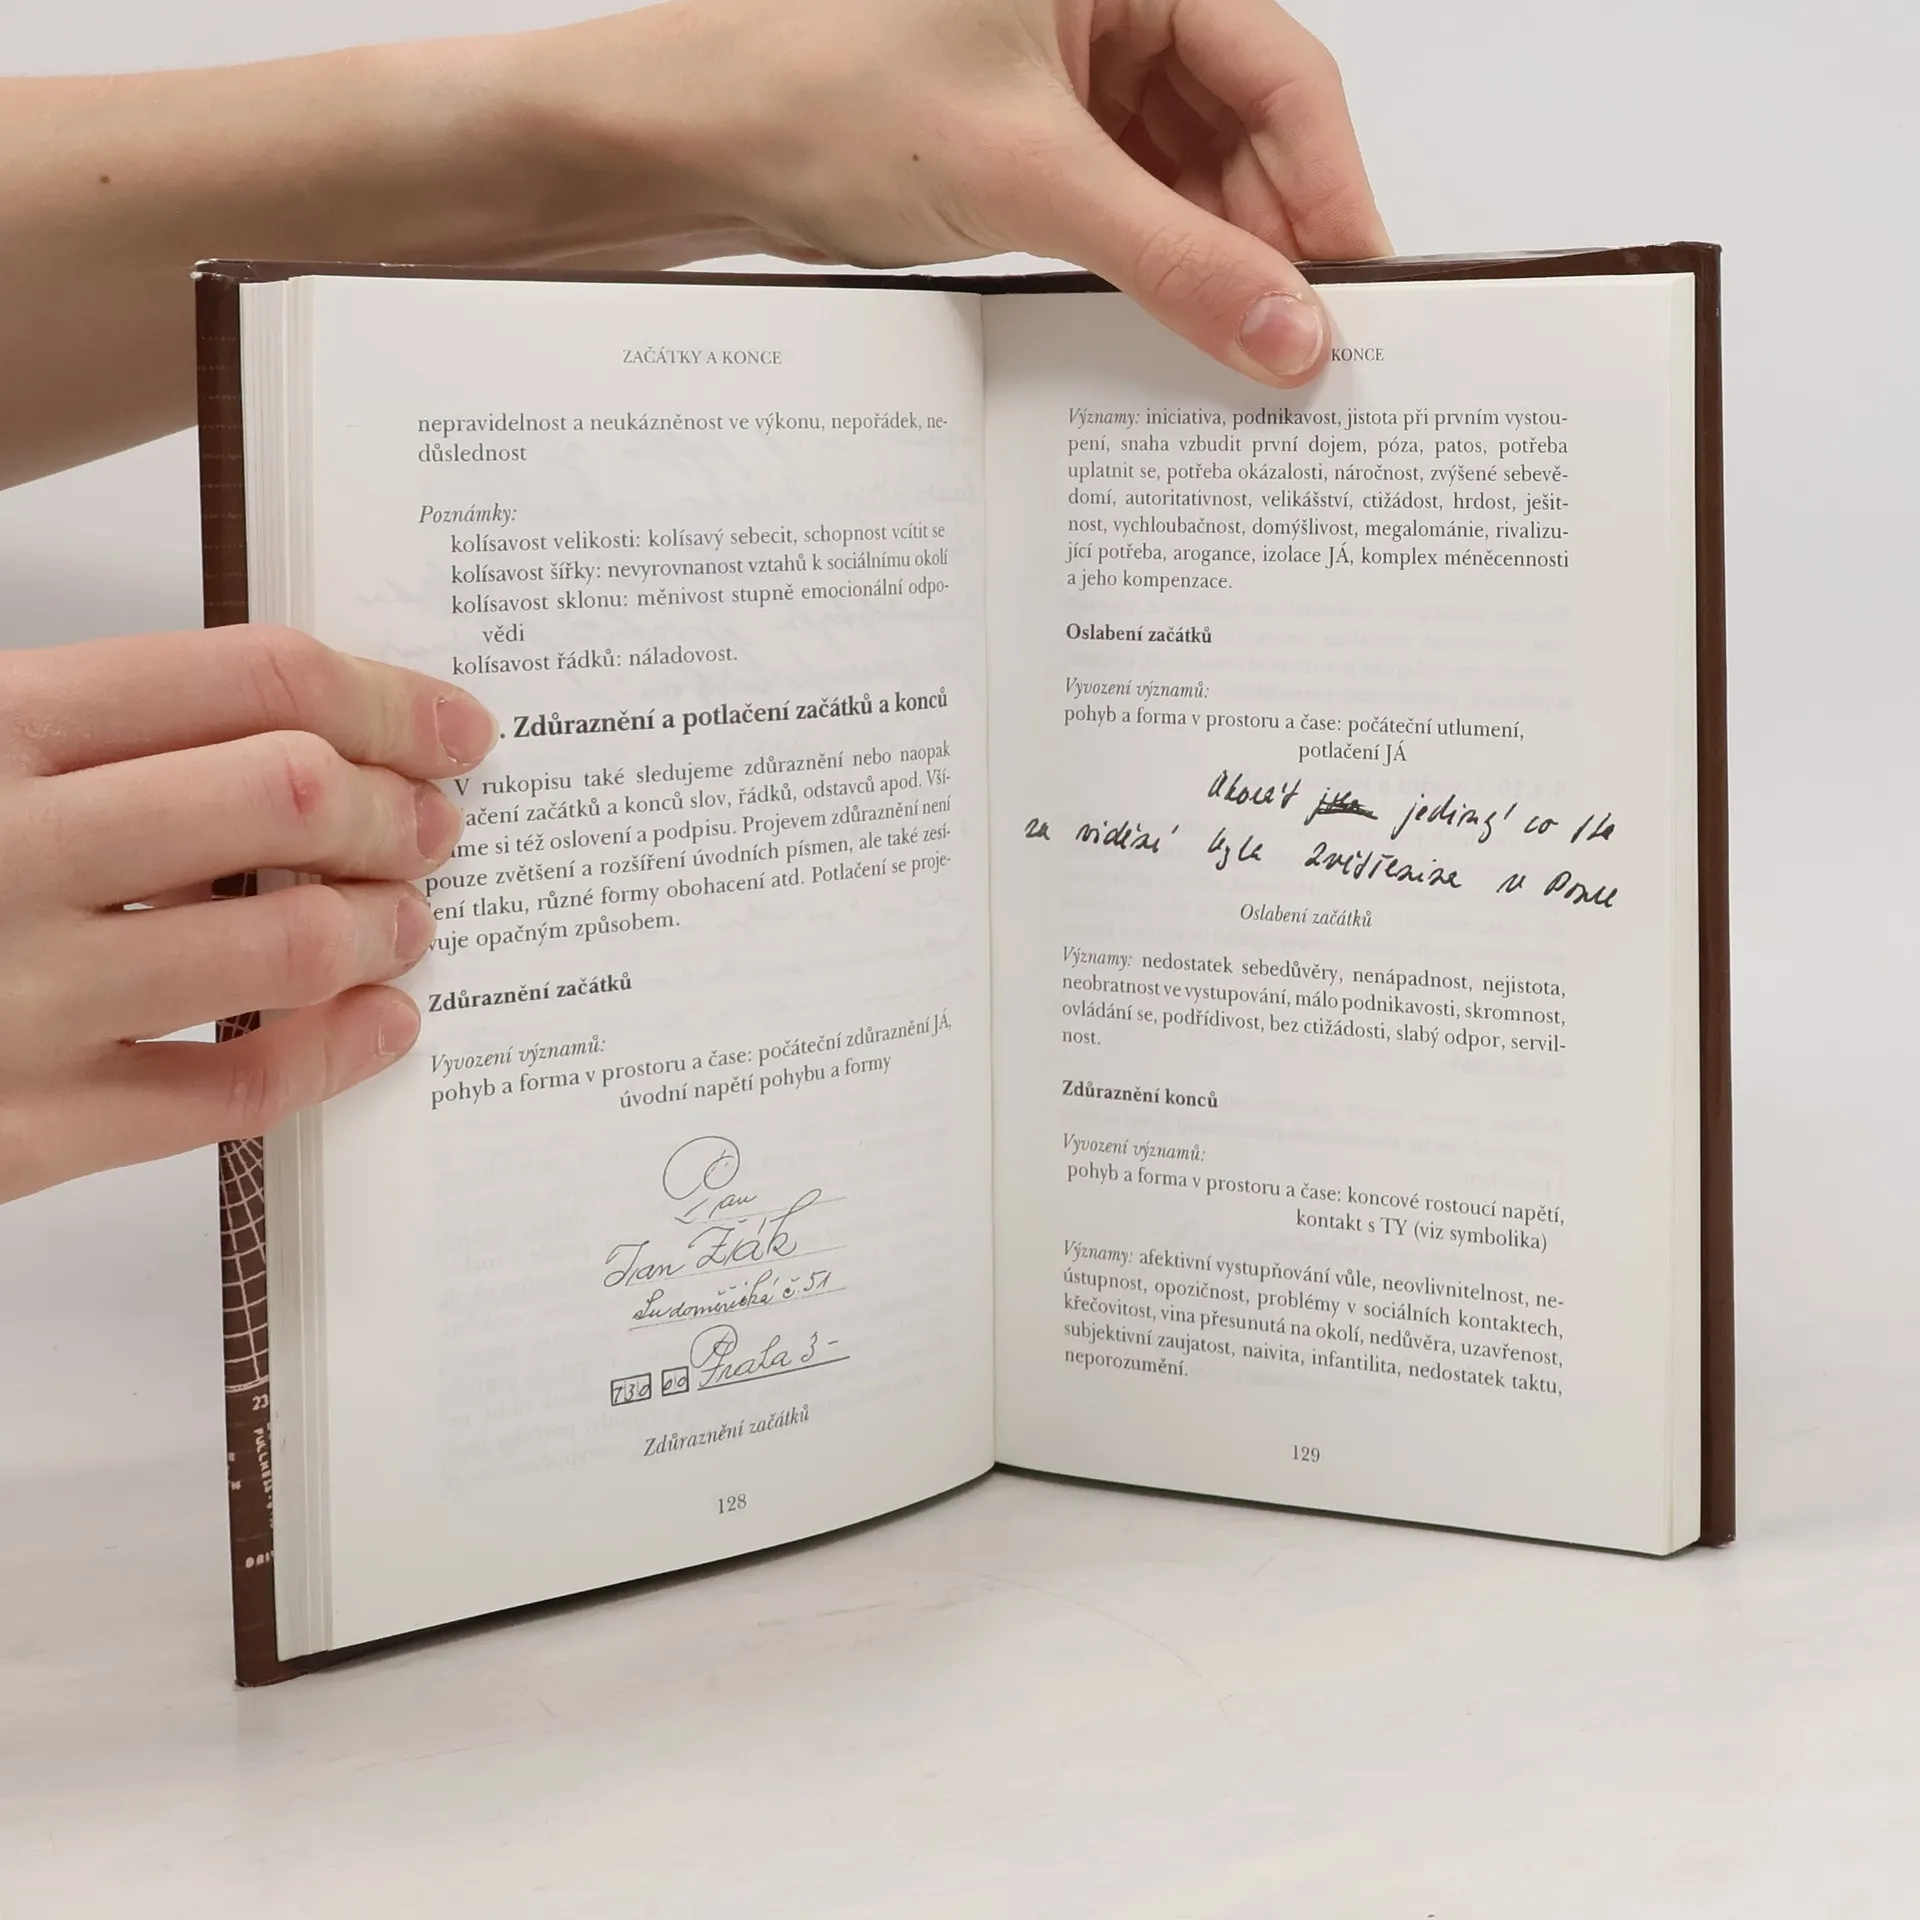 ZAČÁTKY A KONCE
nepravidelnost a neukázněnost ve výkonu, nepořádek, ne-
důslednost
Poznámky:
kolísavost velikosti: kolísavý sebecit, schopnost vcítit se
kolísavost šířky: nevyrovnanost vztahů k sociálnímu okolí
kolísavost sklonu: měnivost stupně emocionální odpo-
vědi
kolísavost řádků: náladovost.
. Zdůraznění a potlačení začátků a konců
V rukopisu také sledujeme zdůraznění nebo naopak
ačení začátků a konců slov, řádků, odstavců apod. Vší-
áme si též oslovení a podpisu. Projevem zdůraznění není
pouze zvětšení a rozšíření úvodních písmen, ale také zesí-
lení tlaku, různé formy obohacení atd. Potlačení se proje-
vuje opačným způsobem.
Zdůraznění začátků
Vyvození významů:
pohyb a forma v prostoru a čase: počáteční zdůraznění JÁ,
úvodní napětí pohybu a formy
Pan
Jan Žák
č. 51
730 00 Praha 3 -
Zdůraznění začátků
128
23
KONCE
Významy: iniciativa, podnikavost, jistota při prvním vystou-
pení, snaha vzbudit první dojem, póza, patos, potřeba
uplatnit se, potřeba okázalosti, náročnost, zvýšené sebevě-
domí, autoritativnost, velikášství, ctižádost, hrdost, ješit-
nost, vychloubačnost, domýšlivost, megalománie, rivalizu-
jící potřeba, arogance, izolace JÁ, komplex méněcennosti
a jeho kompenzace.
Oslabení začátků
Vyvození významů:
pohyb a forma v prostoru a čase: počáteční utlumení,
potlačení JÁ
Akorát jediný co
za vidění byla v
Oslabení začátků
Významy: nedostatek sebedůvěry, nenápadnost, nejistota,
neobratnost ve vystupování, málo podnikavosti, skromnost,
ovládání se, podřídivost, bez ctižádosti, slabý odpor, servil-
nost.
Zdůraznění konců
Vyvození významů:
pohyb a forma v prostoru a čase: koncové rostoucí napětí,
kontakt s TY (viz symbolika)
Významy: afektivní vystupňování vůle, neovlivnitelnost, ne-
ústupnost, opozičnost, problémy v sociálních kontaktech,
křečovitost, vina přesunutá na okolí, nedůvěra, uzavřenost,
subjektivní zaujatost, naivita, infantilita, nedostatek taktu,
neporozumění.
129